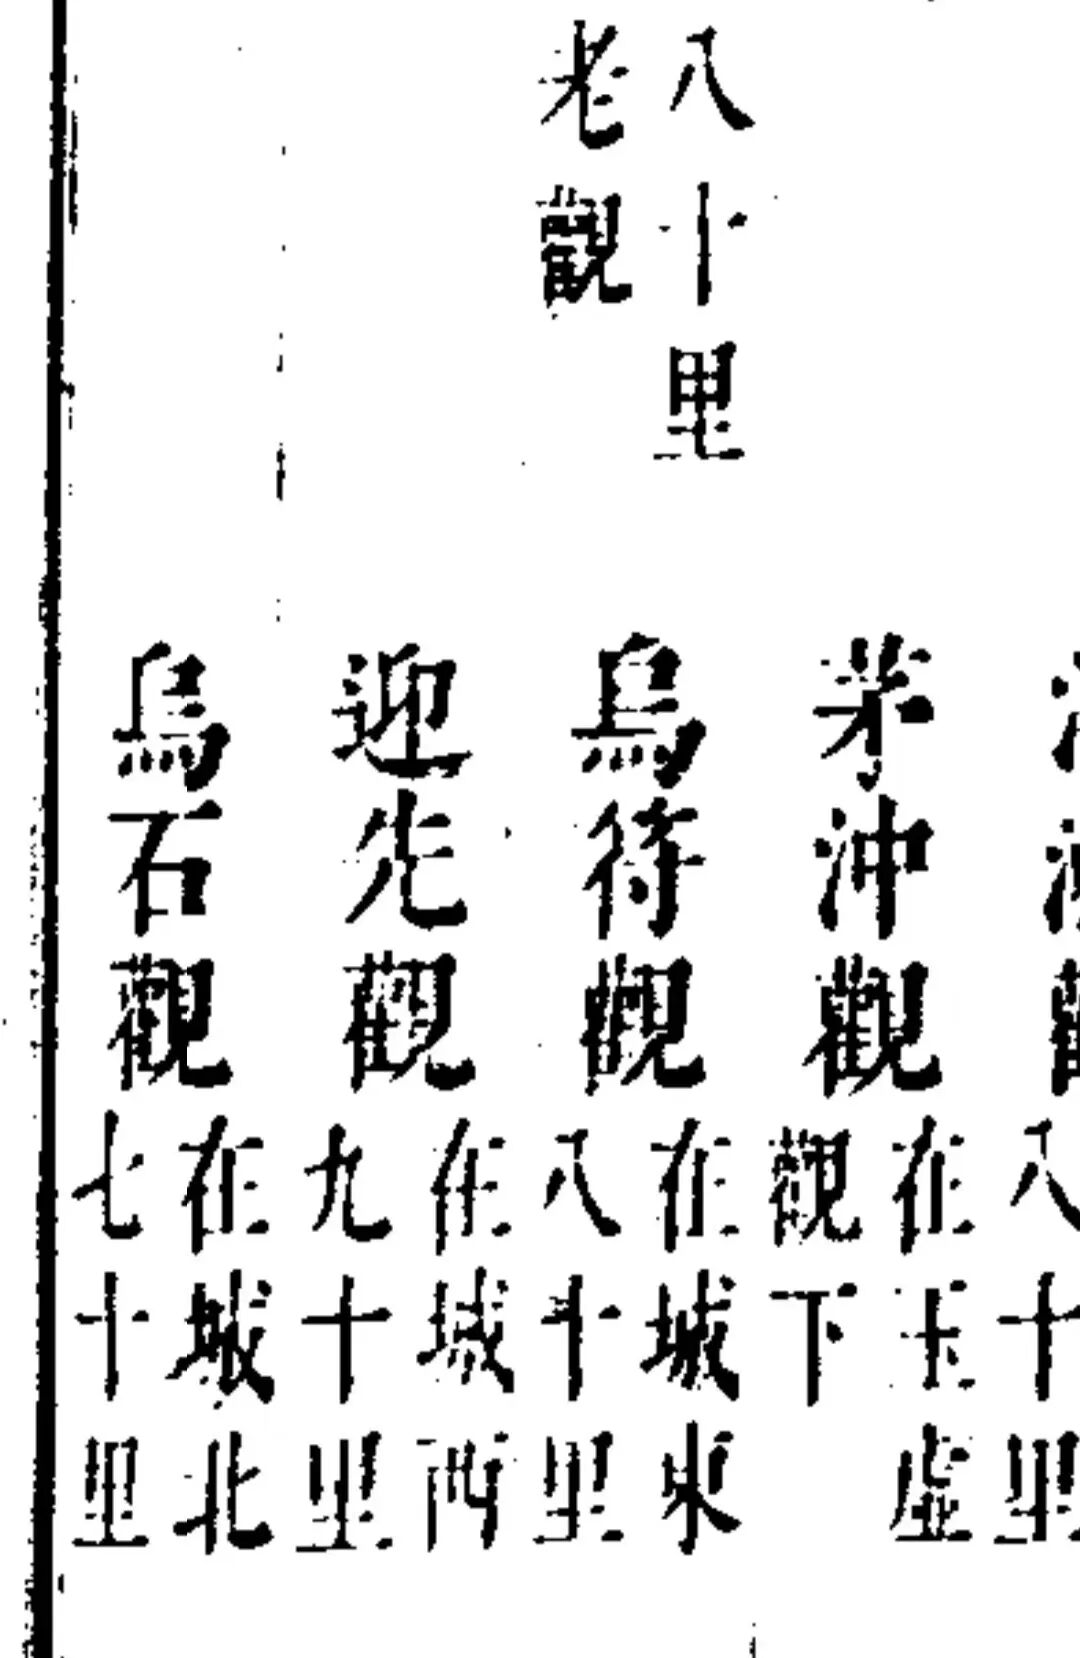 八十里
茅沖觀
在玉虛
觀下
八十里
老觀
烏待觀
在城東
八十里
迎先觀
在城西
九十里
烏石觀
在城北
七十里